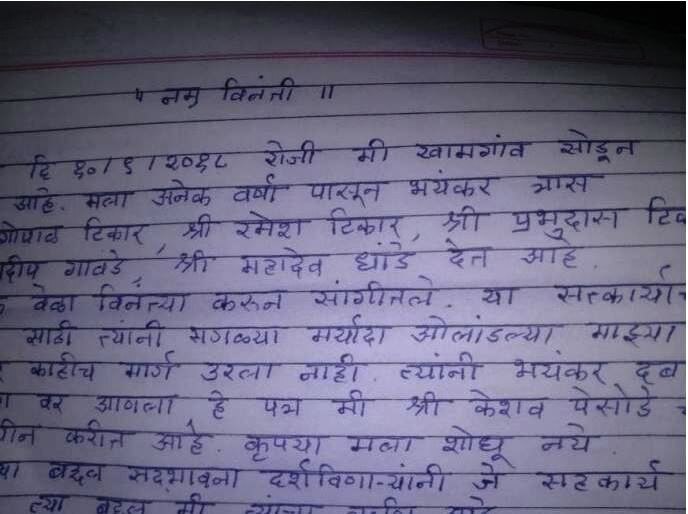 ॥ नम्र विनंती ॥
दि १०/९/२०१८ रोजी मी खामगांव सोडून
आहे. मला अनेक वर्षा पासून भयंकर त्रास
गोपाळ टिकार, श्री रमेश टिकार, श्री प्रभुदास टिक
दीप गावंडे, श्री महादेव धांडे देत आहे.
वेळा विनंत्या करून सांगीतले. या सत्कार्या
साठी त्यांनी सगळ्या मर्यादा ओलांडल्या माझ्या
काहीच मार्ग उरला नाही. त्यांनी भयंकर दब
वर आणला हे पत्र मी श्री केशव पेसोडे
करीत आहे. कृपया मला शोधू नये
बद्दल सदभावना दर्शविणा-यांनी जे सहकार्य
त्या बद्दल मी